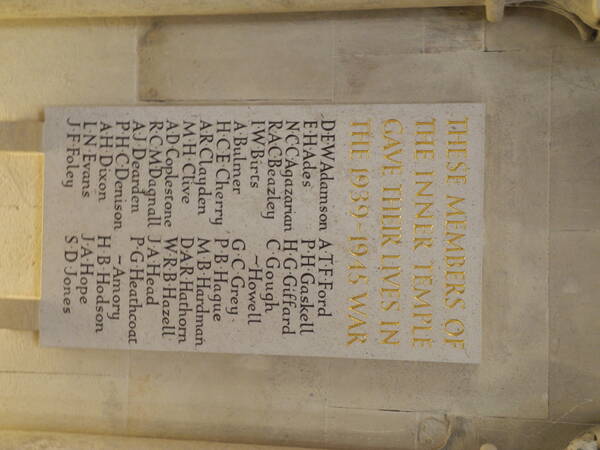 THESE MEMBERS OF
THE INNER TEMPLE
GAVE THEIR LIVES IN
THE 1939–1945 WAR
D·E·W·Adamson
E·H·Ades
N·C·C·Agazarian
R·A·C·Beazley
I·W·Birts
A·Bulmer
H·C·E·Cherry
A·R·Clayden
M·H·Clive
A·D·Coplestone
R·C·M·Dagnall
A·J·Dearden
P·H·C·Denison
A·H·Dixon
L·N·Evans
J·F·Foley
A·T·F·Ford
P·H·Gaskell
H·G·Giffard
C·Gough
~Howell
G·C·Grey
P·B·Hague
M·B·Hardman
D·A·R·Hathorn
W·R·B·Hazell
J·A·Head
P·G·Heathcoat
~Amory
H·B·Hodson
J·A·Hope
S·D·Jones